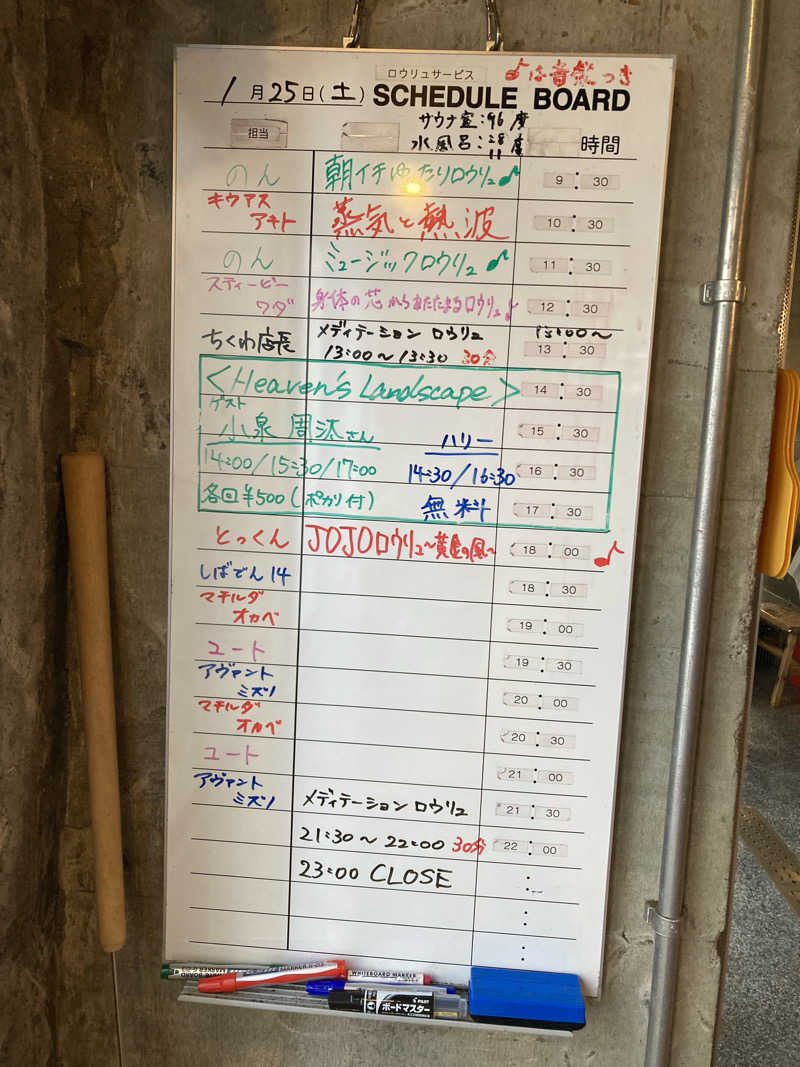 ロウリュサービス
♪は音楽つき
1月25日(土) SCHEDULE BOARD
サウナ室:96度
水風呂:28 11度
担当 時間
のん 朝イチゆったりロウリュ♪ 9:30
キウアス アキト 蒸気と熱波 10:30
のん ミュージックロウリュ♪ 11:30
スティービー ワダ 身体の芯からあたたまるロウリュ♪ 12:30
ちくわ店長 メディテーション ロウリュ 13:00〜
13:00〜13:30 30分 13:30
<Heaven's Landscape> 14:30
ゲスト
小泉 周汰さん ハリー 15:30
14:00/15:30/17:00 14:30/16:30 16:30
各回¥500(ポカリ付) 無料 17:30
とっくん JOJOロウリュ〜黄金の風〜 18:00 ♪
しばでん14 18:30
マチルダ オカベ 19:00
ユート 19:30
アヴァント ミズノ 20:00
マチルダ オカベ 20:30
ユート 21:00
アヴァント ミズノ メディテーション ロウリュ 21:30
21:30〜22:00 30分 22:00
23:00 CLOSE
WHITEBOARD MARKER
PILOT
ボードマスター